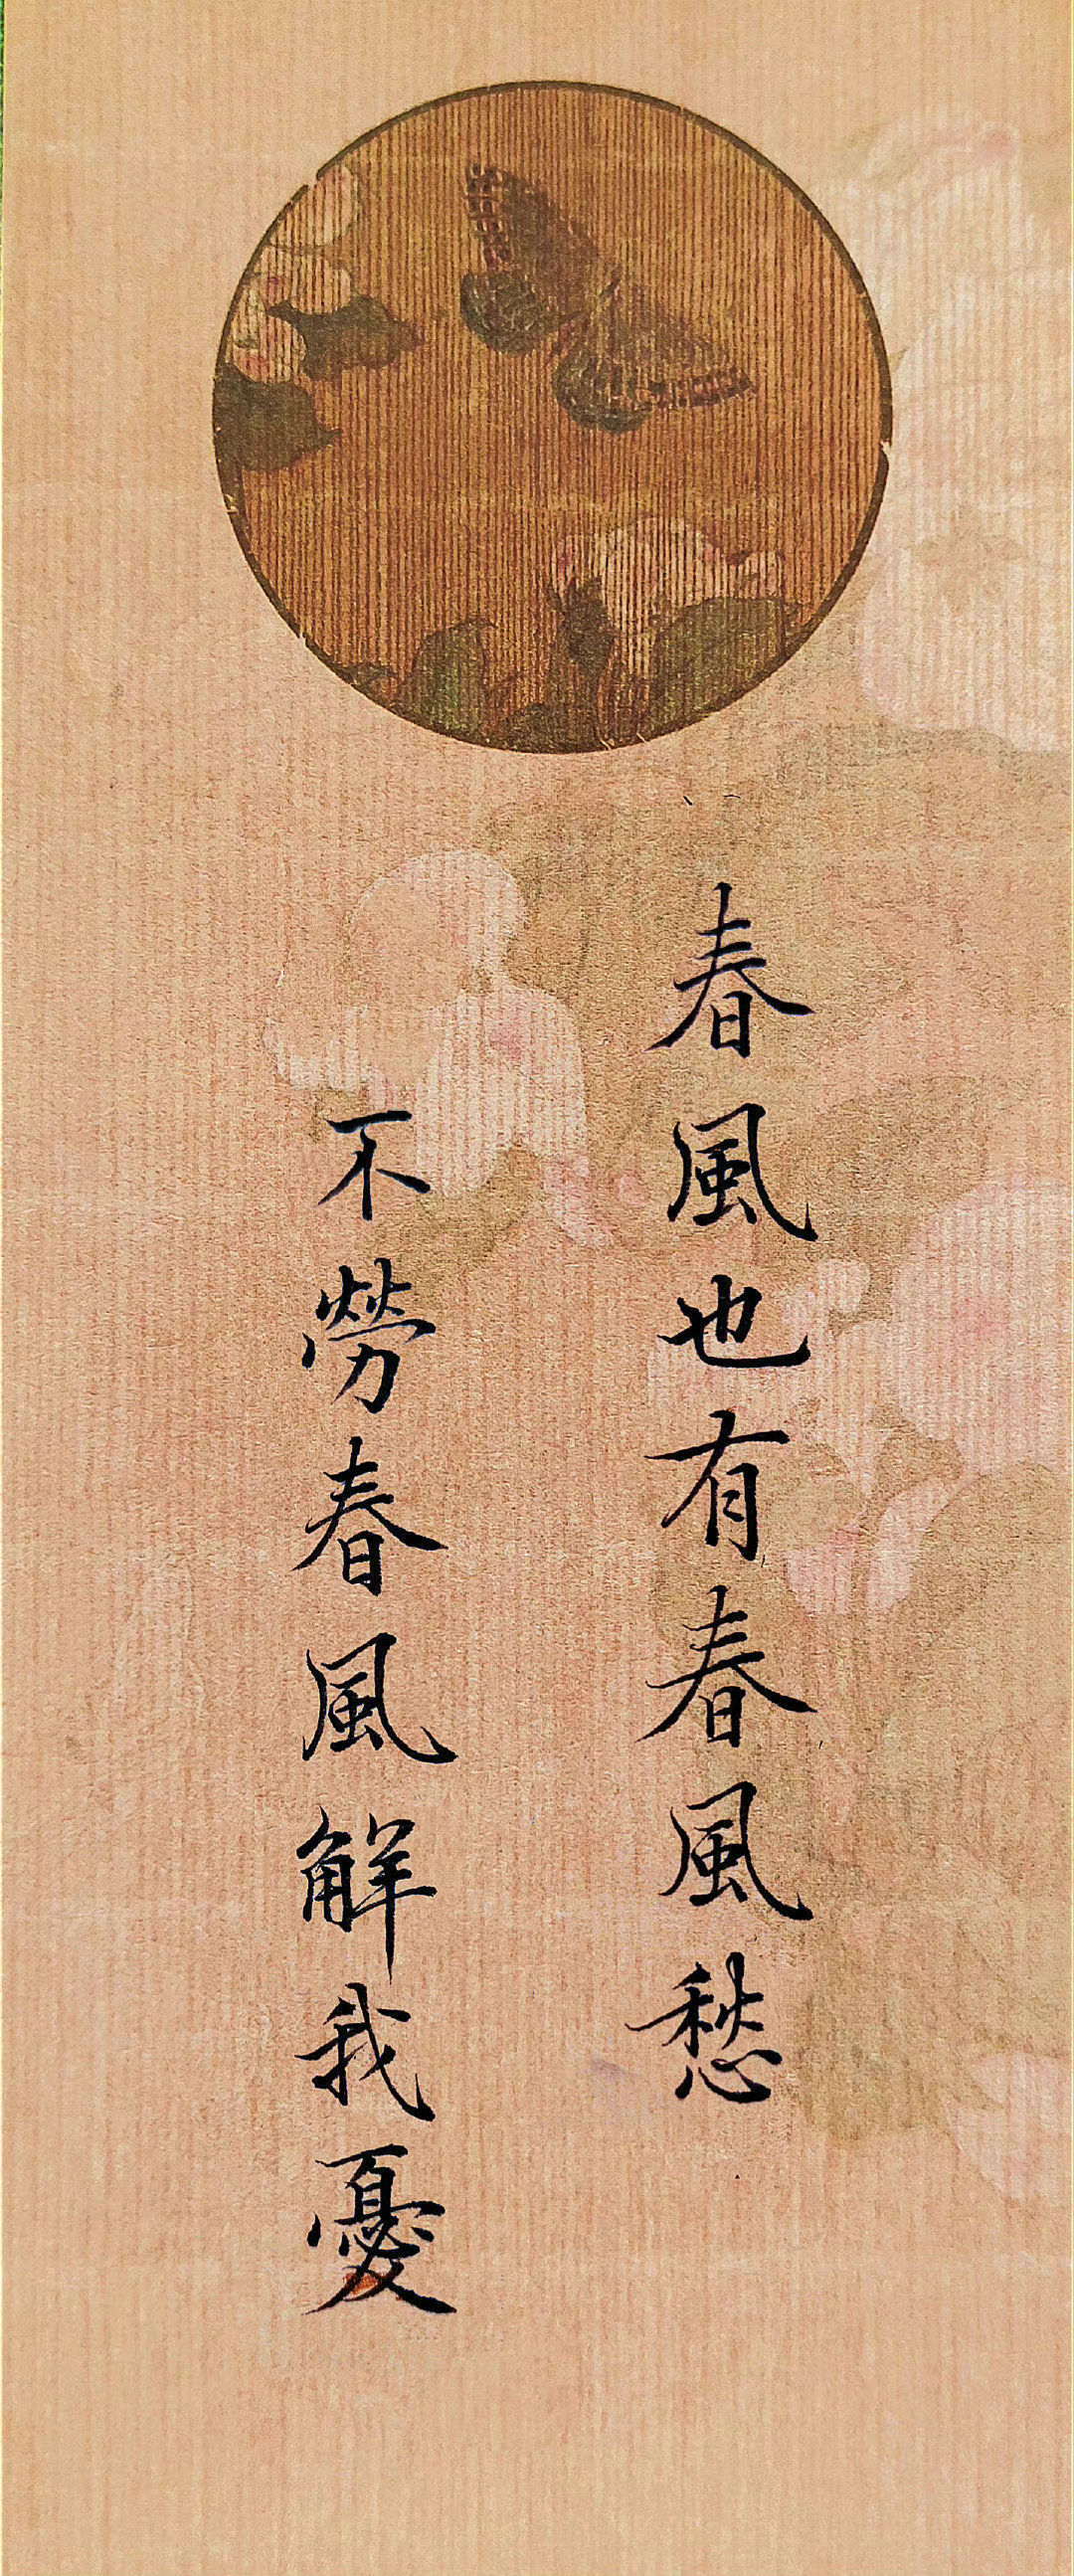 春風也有春風愁
不勞春風解我憂